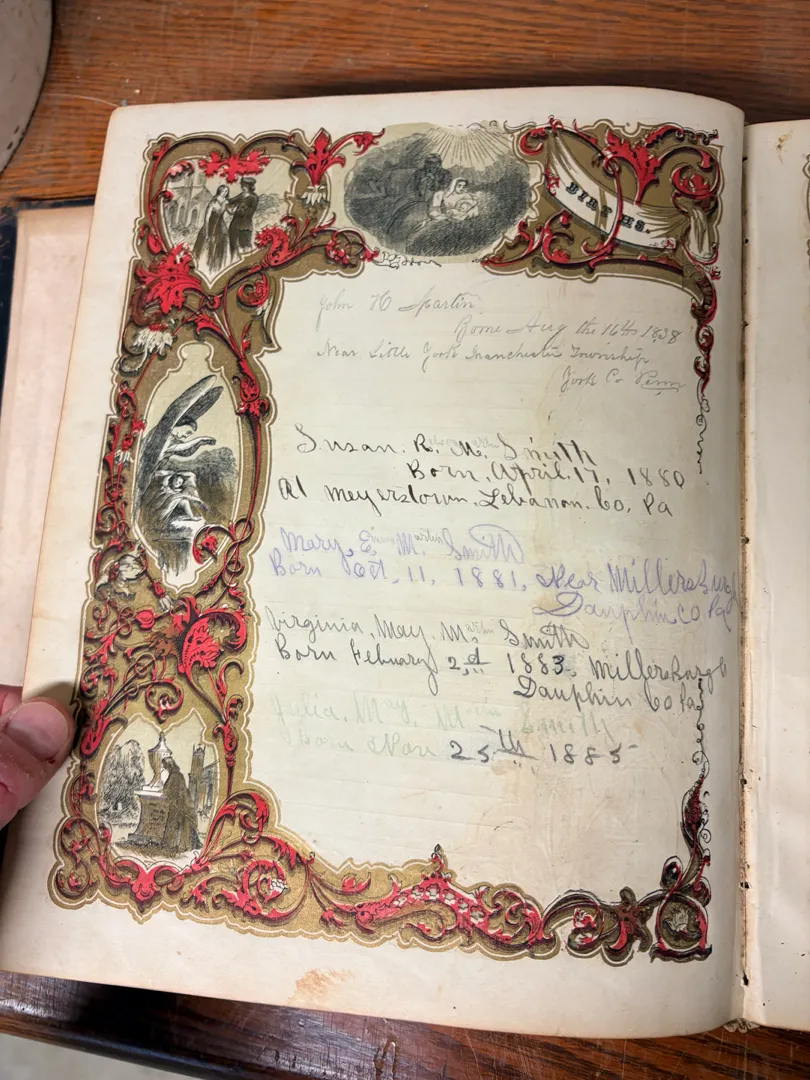 BIRTHS.
John H Spartin
Borne Aug the 16th 1838
Near Little York Manchester Township
York Co Penn
Susan. R. M. Smith
Born, April. 17, 1880
At Meyerstown. Lebanon. Co, Pa
Mary, E. Martin Smith
Born Oct, 11, 1881, Near Millersburg
Dauphin Co Pa
Virginia, May, M. Smith
Born Febuary 2d 1883, Millersburgh
Dauphin Co Pa
Julia, May, M Smith
Born Nov 25th 1885